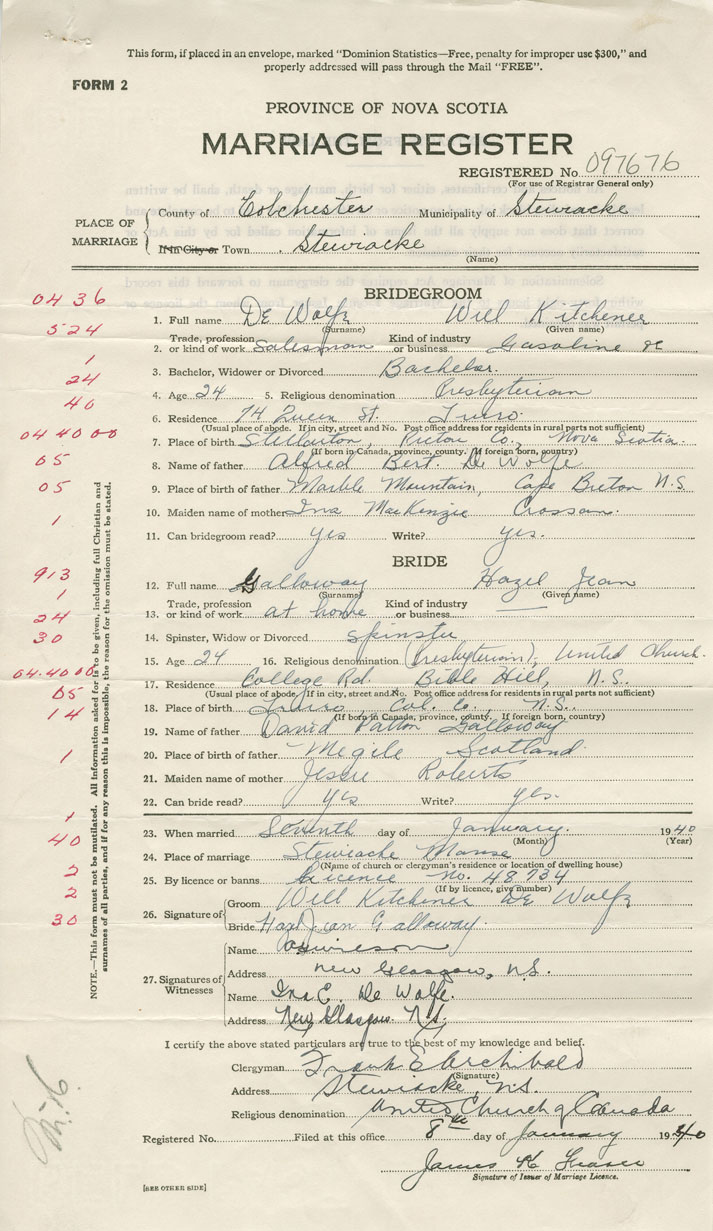 This form, if placed in an envelope, marked "Dominion Statistics—Free, penalty for improper use $300," and
properly addressed will pass through the Mail "FREE".
FORM 2
PROVINCE OF NOVA SCOTIA
MARRIAGE REGISTER
REGISTERED No 097676
(For use of Registrar General only)
PLACE OF MARRIAGE
County of Colchester Municipality of Stewiacke
If in City or Town Stewiacke
(Name)
BRIDEGROOM
0436
1. Full name De Wolfe Will Kitchener
(Surname) (Given name)
524
2. Trade, profession or kind of work Salesman Kind of industry or business Gasoline &c
1
3. Bachelor, Widower or Divorced Bachelor.
24
4. Age 24 5. Religious denomination Presbyterian
40
6. Residence 74 Queen St. Truro.
(Usual place of abode. If in city, street and No. Post office address for residents in rural parts not sufficient)
04 40 00
7. Place of birth Stellarton, Pictou Co., Nova Scotia.
(If born in Canada, province, county. If foreign born, country)
05
8. Name of father Alfred Bert. De Wolfe
05
9. Place of birth of father Marble Mountain, Cape Breton N.S.
10. Maiden name of mother Ina MacKenzie Crossan.
1
11. Can bridegroom read? yes Write? yes.
BRIDE
913
12. Full name Galloway Hazel Jean
(Surname) (Given name)
1
13. Trade, profession or kind of work at home Kind of industry or business —
24
14. Spinster, Widow or Divorced Spinster
30
15. Age 24 16. Religious denomination (Presbyterian), United Church.
04.4000
17. Residence College Rd. Bible Hill, N.S.
(Usual place of abode. If in city, street and No. Post office address for residents in rural parts not sufficient)
05
18. Place of birth Truro, Col. Co., N.S.
(If born in Canada, province, county. If foreign born, country)
14
19. Name of father David Patton Galloway
20. Place of birth of father Scotland
1
21. Maiden name of mother Jessie Roberts
22. Can bride read? yes Write? yes.
1
23. When married Seventh day of January. 1940
(Month) (Year)
40
24. Place of marriage Stewiacke Manse
(Name of church or clergyman's residence or location of dwelling house)
2
25. By licence or banns Licence No. 48734
(If by licence, give number)
2
26. Signature of Groom Will Kitchener De Wolfe
30
Bride Hazel Jean Galloway.
27. Signatures of Witnesses
Name
Address New Glasgow, N.S.
Name Ina E. De Wolfe.
Address New Glasgow. N.S.
I certify the above stated particulars are true to the best of my knowledge and belief.
Clergyman Frank E Archibald
(Signature)
Address Stewiacke, N.S.
Religious denomination United Church of Canada
Registered No. Filed at this office 8th day of January 1940
James H Fraser
Signature of Issuer of Marriage Licence.
[SEE OTHER SIDE]
NOTE.—This form must not be mutilated. All information asked for is to be given, including full Christian and
surnames of all parties, and if for any reason this is impossible, the reason for the omission must be stated.